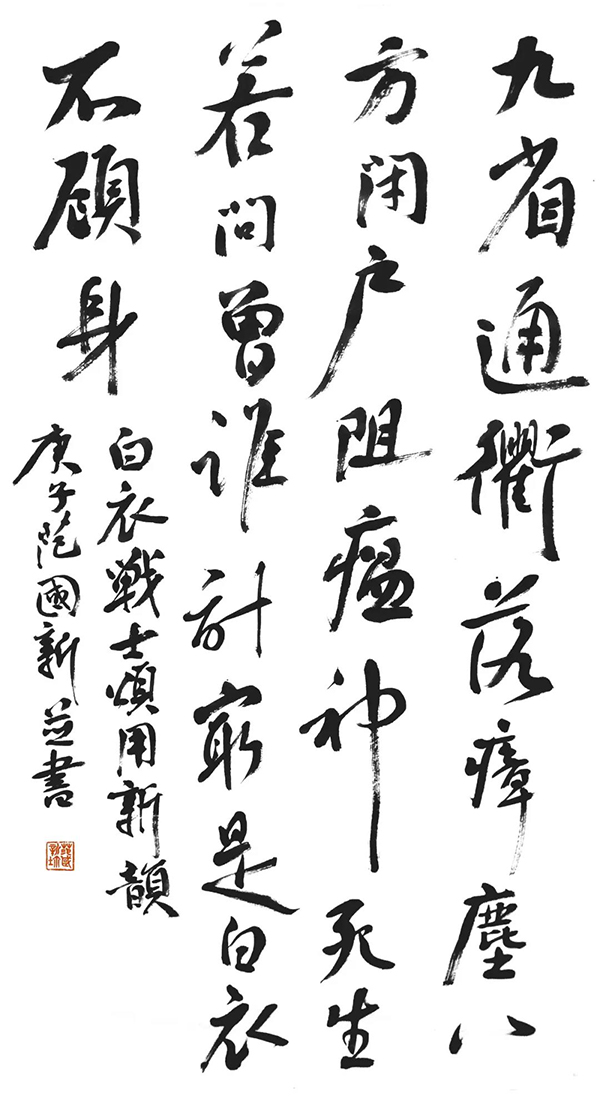 九省通衢落瘴塵八
方閉户阻瘟神死生
若問曾誰計窮是白衣
不顧身
白衣戰士頌用新韻
庚子范國新並書